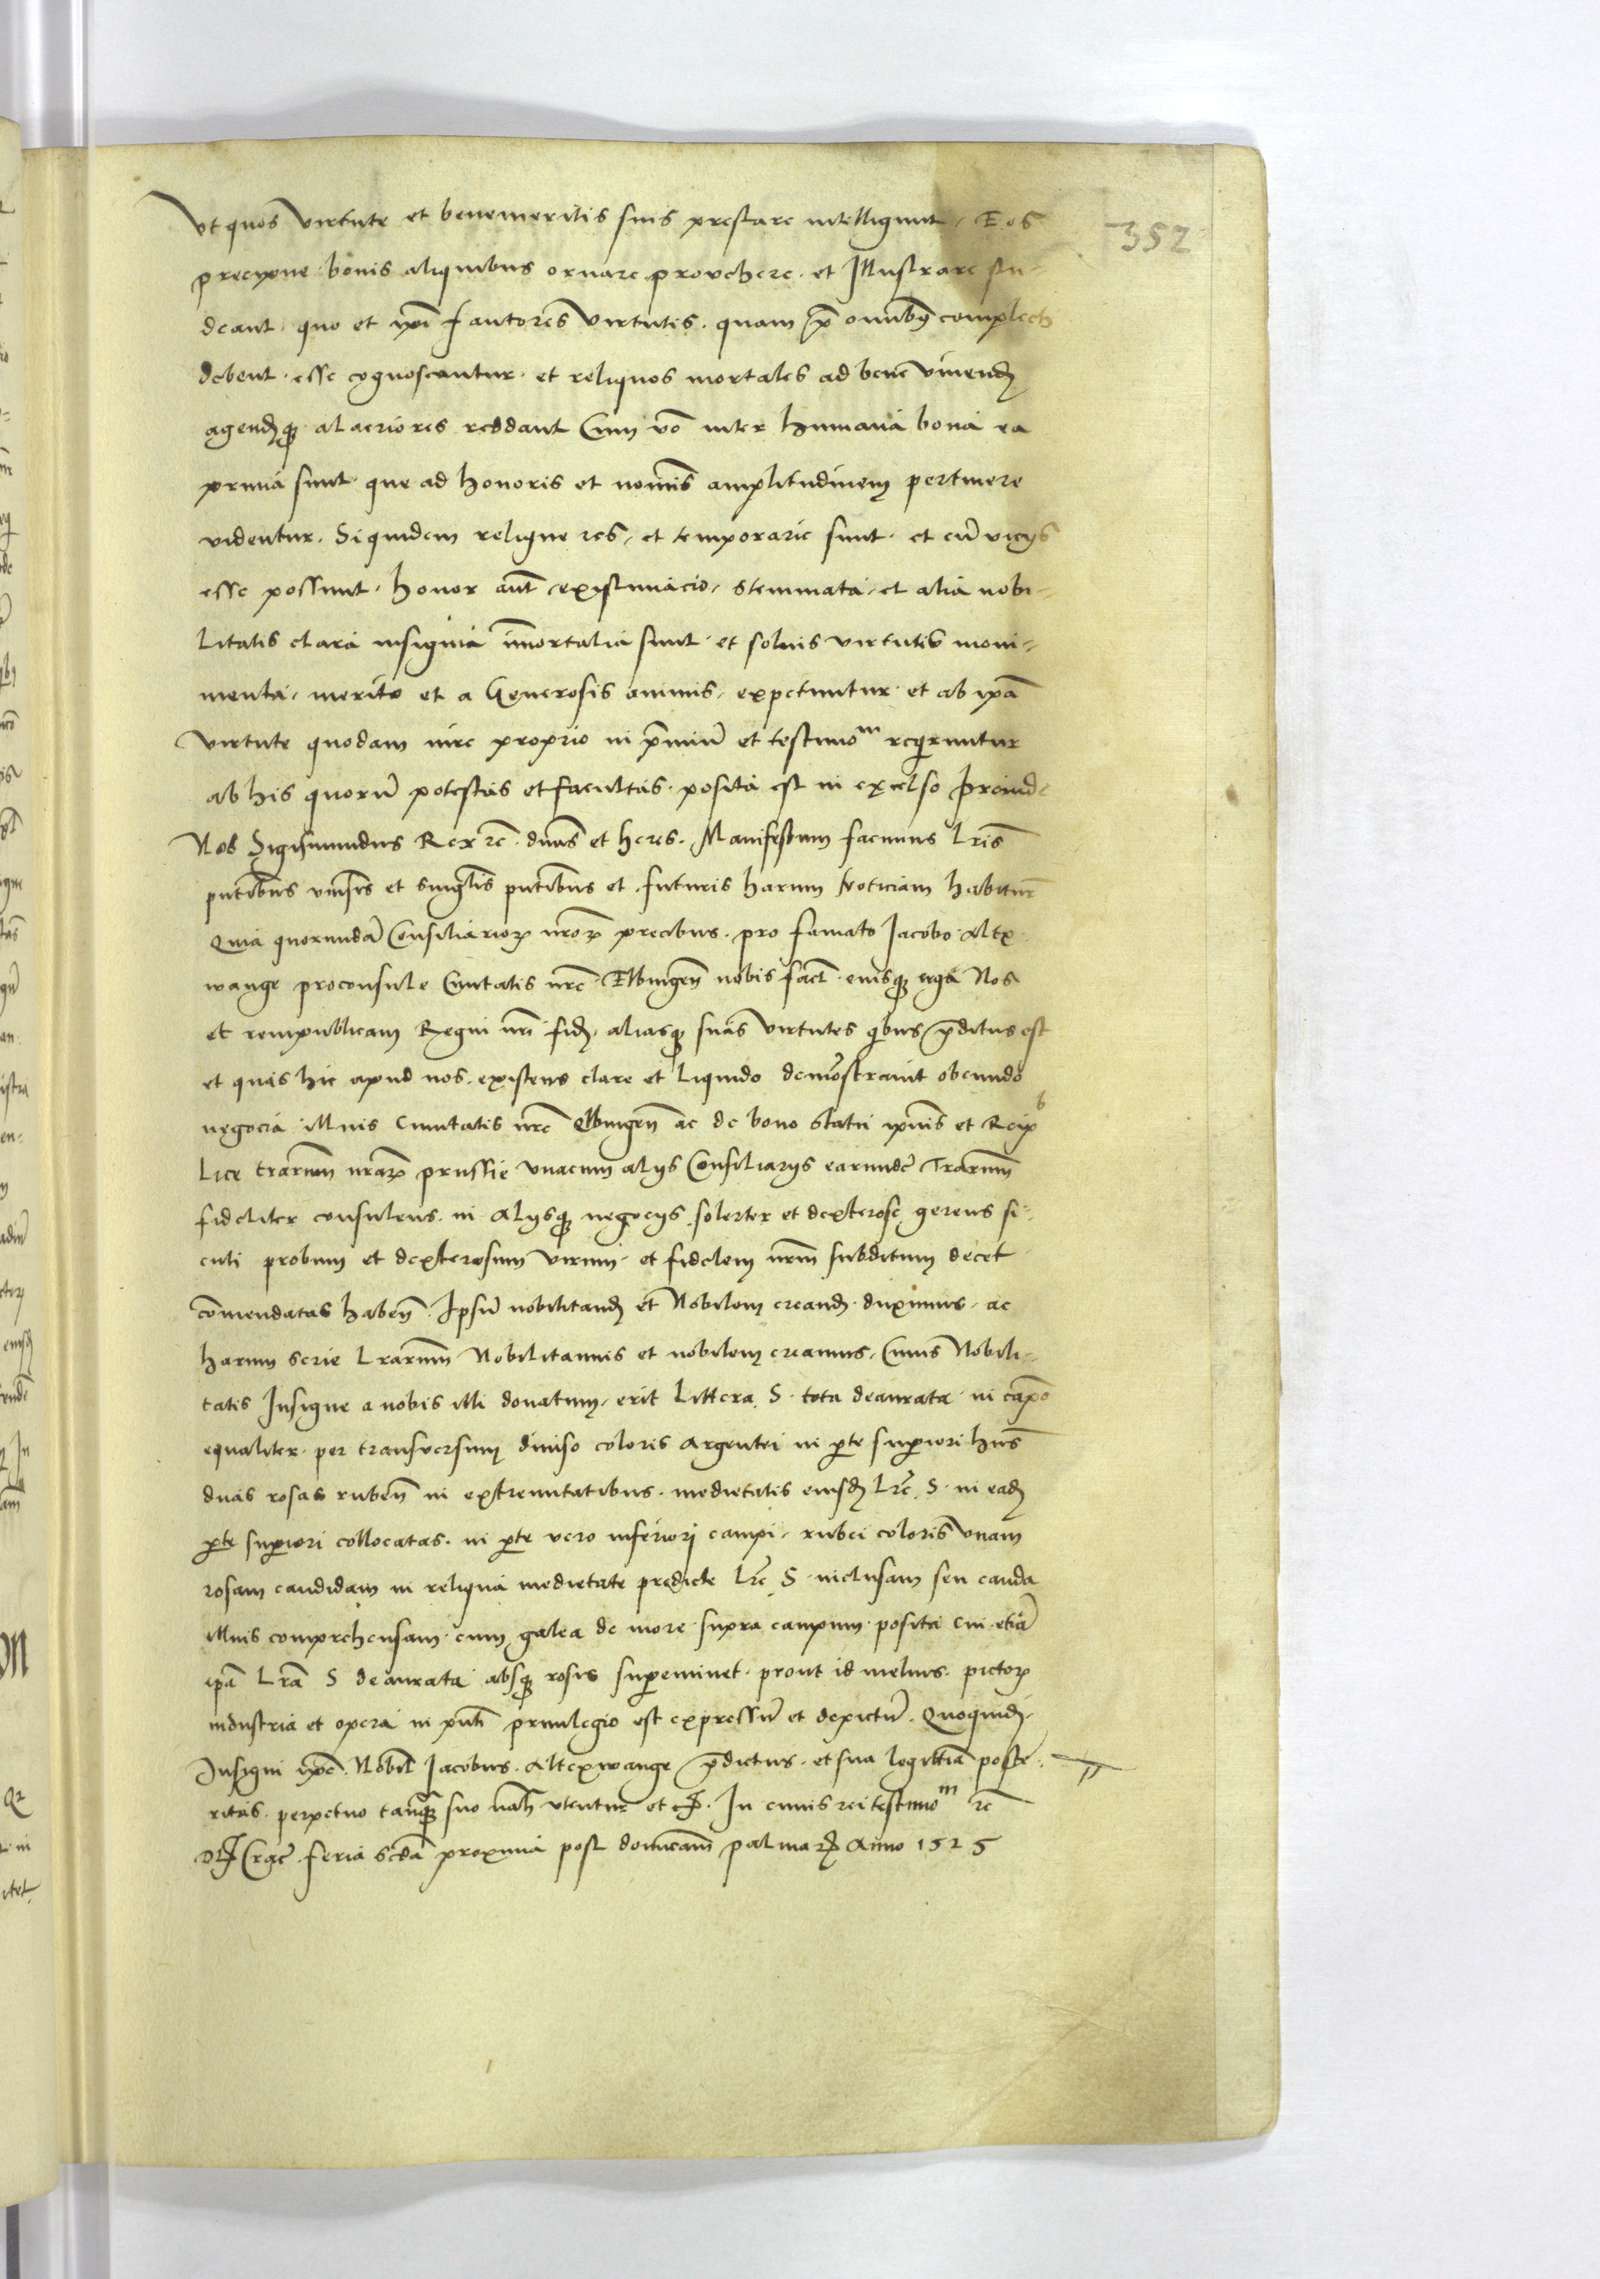 352
Vt quos virtute et benemeritis suis prestare intelligunt, Eos
precipue bonis aliquibus ornare provehere et Illustrare stu-
deant, quo et ipī fautores virtutis, quam p̄ omnibꝰ complecti
debent, esse cognoscantur et reliquos mortales ad bene vivend
agendꝫqꝫ alacriores reddant Cum vō inter humana bona ea
prima sunt que ad honoris et nominis amplitudinem pertinere
videntur. Siquidem relique res, et temporarie sunt et cū vicijs
esse possunt, honor aūt existimacio, stemmata, et alia nobi-
litatis clara insignia īmortalia sunt et solius virtutis moni-
menta, merito et a Generosis animis, expetuntur et ab ipā
virtute quodam iure proprio in p̄miū et testimoᵐ reqiruntur
ab his quorū potestas et facultas posita est in excelso Proinde
Nos Sigismundus Rex rc̄ dnūs et heres. Manifestum facimus Lris
pn̄tibus vniṽsis et singlis pn̄tibus et futuris harum Noticiam habitur
Quia quorundā Consiliarioꝝ nr̄oꝝ precibus pro famato Jacobo Altx
wange proconsule Ciuitatis nr̄e Elbingeñ nobis fact eiusqꝫ erga Nos
et rempublicam Regni nr̄i fidꝫ, aliasqꝫ suas virtutes qibus p̄ditus est
et quas hic apud nos existens clare et liquido demōstrauit obeundo
negocia illius Ciuitatis nr̄e Elbingeñ ac de bono statu ipsius et Reipᵇ
lice trarum nr̄aꝝ prussie vnacum alijs Consiliarijs earundē Trarum
fideliter consulens in Alijsqꝫ negocijs solerter et dexterose gerens si-
cuti probum et dexterosum virum et fidelem nrm̄ subditum decet
cōmendatas habeñ Ipsū nobilitandꝫ et Nobilem creandꝫ duximus, ac
harum serie Lrarum Nobilitamus et nobilem creamus, Cuius Nobili-
tatis Insigne a nobis illi donatum, erit Littera S tota deaurata in cāpo
equaliter per transversum diuiso coloris Argentei in pte supiori hns
duas rosas rubeñ in extremitatibus medietatis eiusdꝫ Lre S in eadꝫ
pte supiori collocatas in pte vero inferiori campi rubei coloris vnam
rosam candidam in reliqua medietate predicte Lre S inclusam seu cauda
illius comprehensam cum galea de more supra campum posita cui etiā
ipā Lrā S deaurata absqꝫ rosis supeminet prout id melius pictoꝝ
industria et opera in pn̄ti priuilegio est expressū et depictū. Quoquidꝫ
Insigni ipē Nobil Jacobus Altxwange p̄dictus et sua legittia poste-
ritas perpetuo tanqꝫ suo utentur et In cuius rei testimoᵐ rc̄
Crac̄ feria scdā proxima post dominicam palmarꝫ Anno 1525